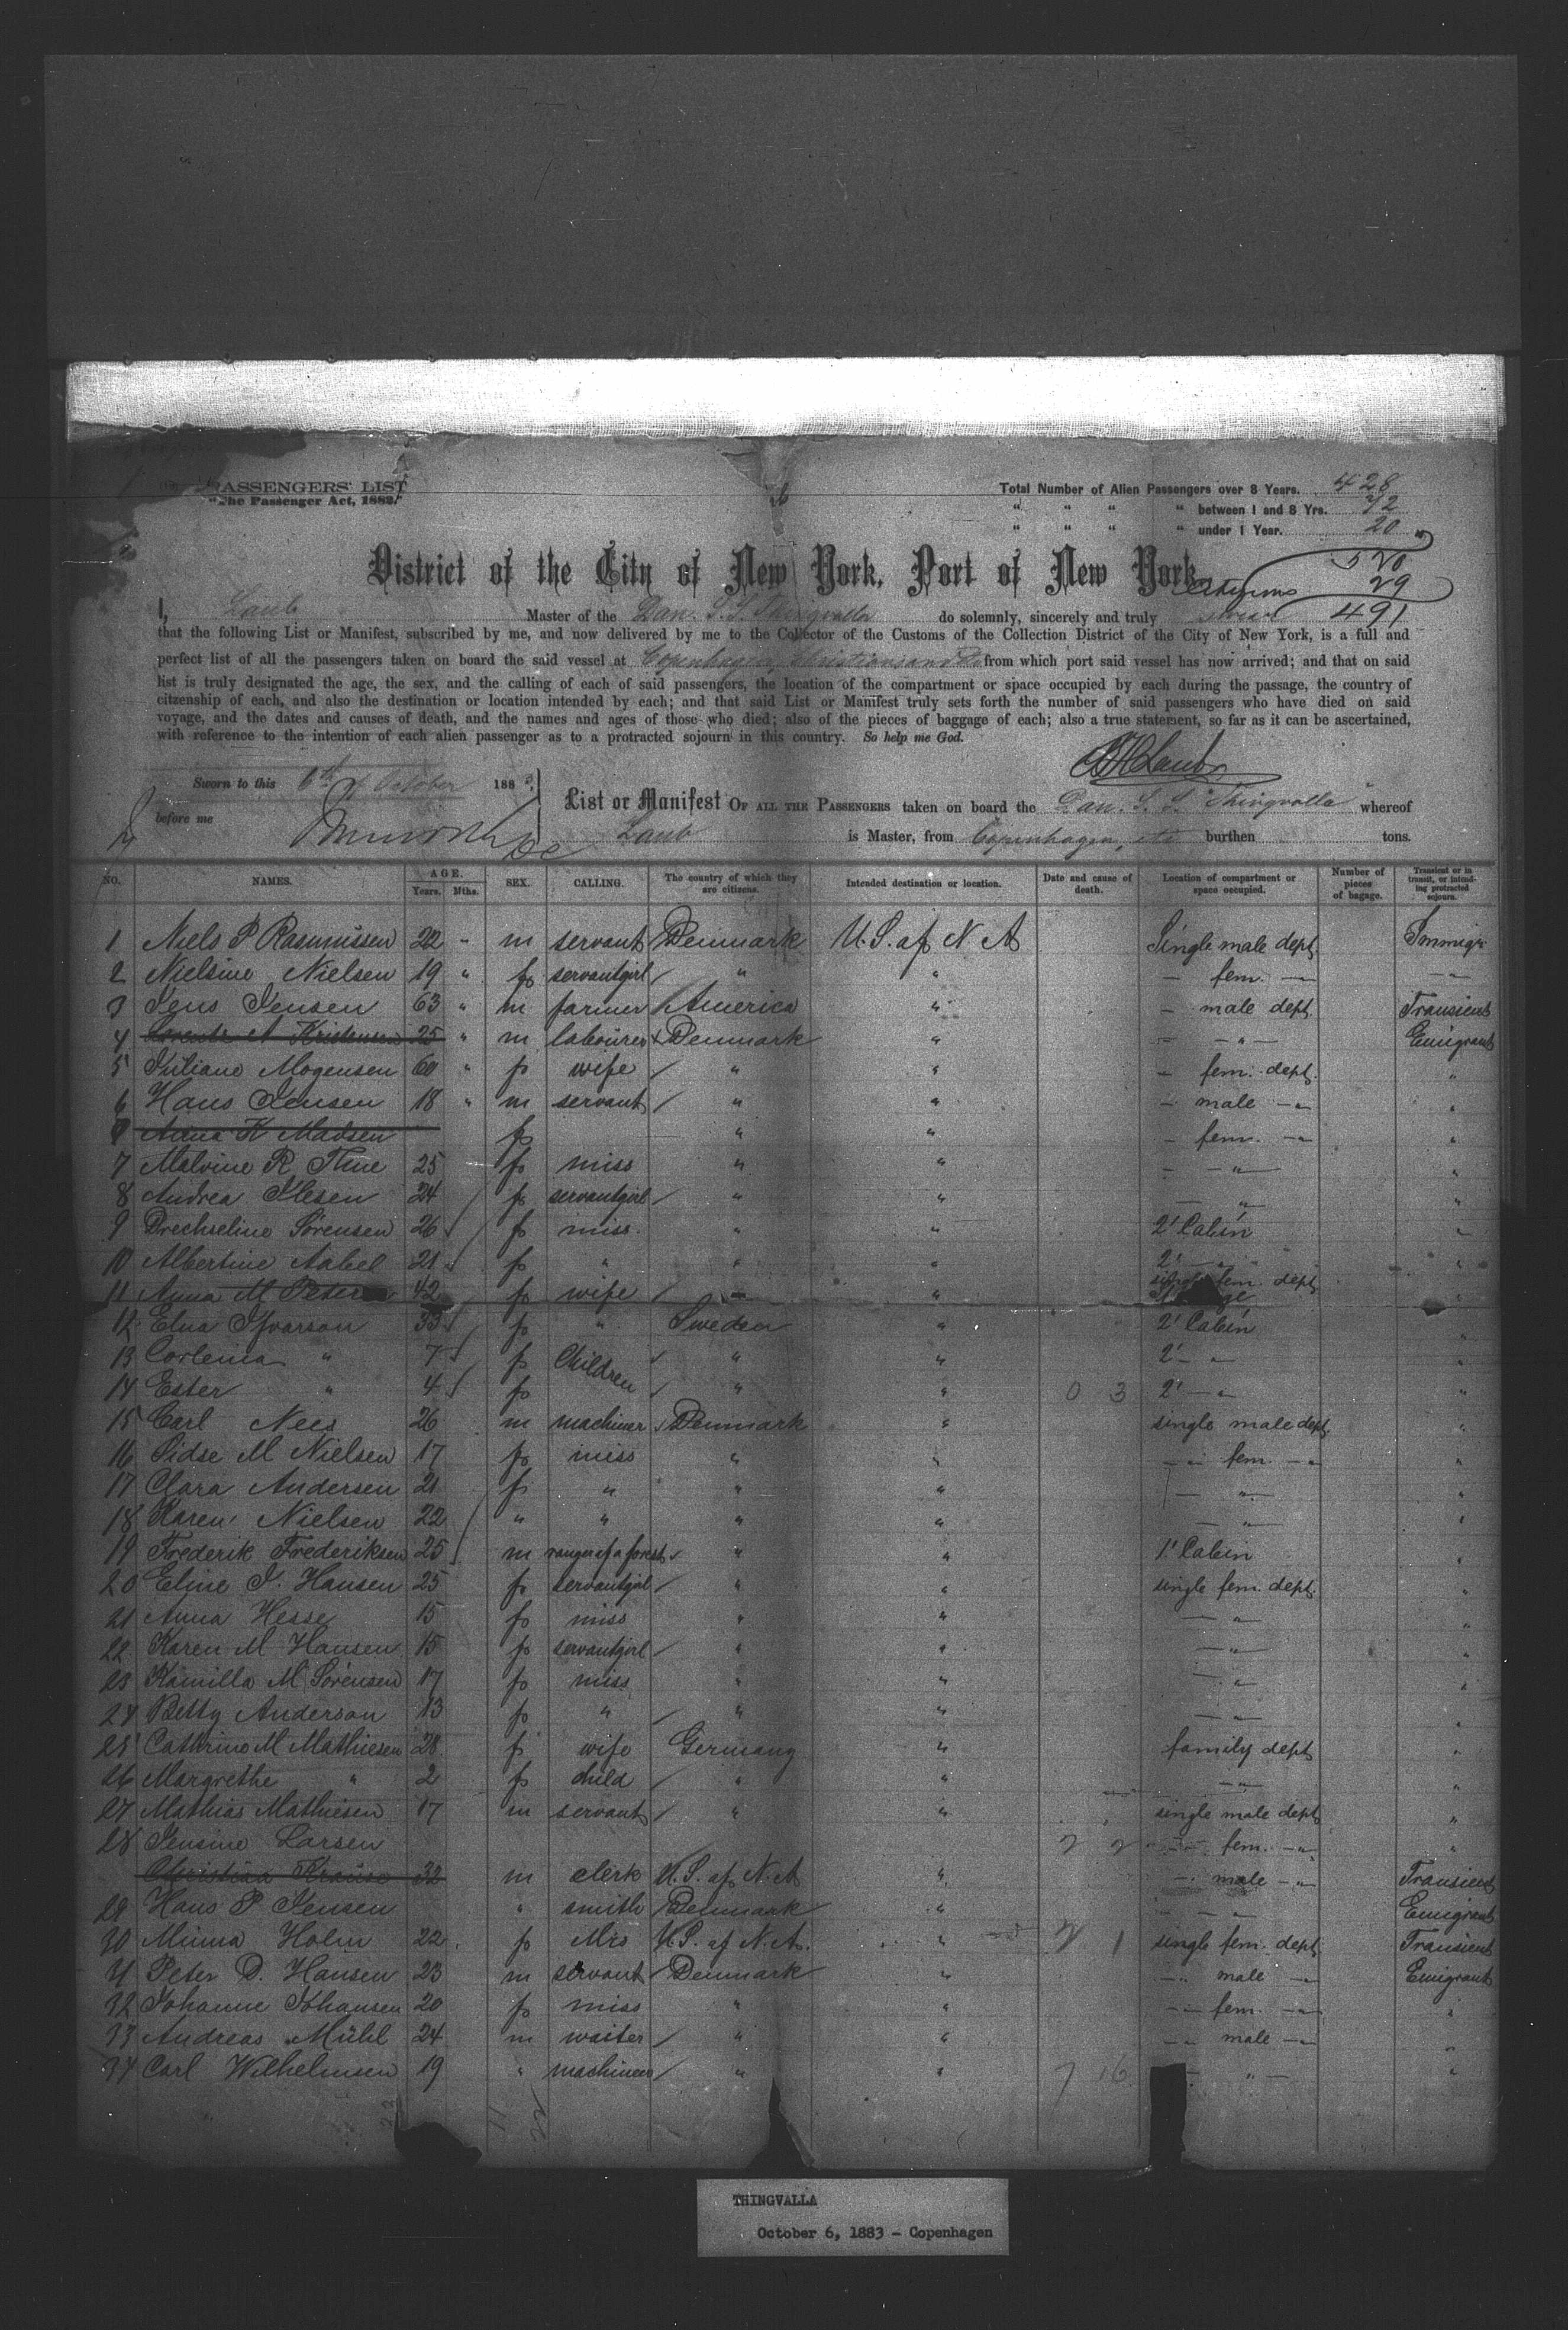 PASSENGERS' LIST
"The Passenger Act, 1882."
Total Number of Alien Passengers over 8 Years. 428
" " " " between 1 and 8 Yrs. 72
" " " " under 1 Year. 20
520
District of the City of New York, Port of New York
29
I, Laub Master of the Dan. S.S. Thingvalla do solemnly, sincerely and truly swear 491
that the following List or Manifest, subscribed by me, and now delivered by me to the Collector of the Customs of the Collection District of the City of New York, is a full and
perfect list of all the passengers taken on board the said vessel at Copenhagen, Christiansand from which port said vessel has now arrived; and that on said
list is truly designated the age, the sex, and the calling of each of said passengers, the location of the compartment or space occupied by each during the passage, the country of
citzenship of each, and also the destination or location intended by each; and that said List or Manifest truly sets forth the number of said passengers who have died on said
voyage, and the dates and causes of death, and the names and ages of those who died; also of the pieces of baggage of each; also a true statement, so far as it can be ascertained,
with reference to the intention of each alien passenger as to a protracted sojourn in this country. So help me God.
Laub
Sworn to this 6th of October 1883
before me
List or Manifest OF ALL THE PASSENGERS taken on board the Dan. S. S. "Thingvalla" whereof
Laub is Master, from Copenhagen, etc burthen tons.
NO. NAMES. AGE. Years. Mths. SEX. CALLING. The country of which they are citizens. Intended destination or location. Date and cause of death. Location of compartment or space occupied. Number of pieces of bagage. Transient or in transit, or intending protracted sojourn.
1 Niels P Rasmussen 22 - m servant Denmark U.S. af N A Single male dept. Immigr
2 Nielsine Nielsen 19 " f servantgirl " " - fem. -"- -"-
3 Jens Jensen 63 " m farmer America " - male dept. Transient
4 25 " m labourer Denmark " - -"- Emigrant
5 Juliane Mogensen 60 " f wife " " - fem. dept. "
6 Hans Jensen 18 " m servant " " - male -"- "
Anna K Madsen f " " - fem. -"- "
7 Malvine R Thue 25 f miss " " - -"- "
8 Andrea Olesen 24 f servantgirl " " -"- "
9 Drechseline Sørensen 26 f miss. " " 2' Cabin "
10 Albertine Aabel 21 f " " " 2' -"- "
11 Anna M Petersen 42 f wife " " single fem. dept. "
12 Elna Ifvarson 33 f " Sweden " 2' Cabin "
13 " 7 f Children " " 2' -"- "
14 Ester " 4 f " " 0 3 2' -"- "
15 Carl Nees 26 m machiner Denmark " single male dept. "
16 Sidse M Nielsen 17 f miss " " -"- fem. -"- "
17 Clara Andersen 21 f " " " -"- "
18 Karen Nielsen 22 " " " " -"- "
19 Frederik Frederiksen 25 m ranger of a forest " " 1' Cabin "
20 Eline J. Hansen 25 f servantgirl " " single fem. dept. "
21 Anna Hesse 15 f miss " " -"- "
22 Karen M Hansen 15 f servantgirl " " -"- "
23 Kamilla M Sørensen 17 f miss " " -"- "
24 Betty Anderson 13 f " " " -"- "
25 Cathrine M Mathiesen 28 f wife Germany " family dept "
26 Margrethe " 2 f child " " -"- "
27 Mathias Mathiesen 17 m servant " " single male dept. "
28 Jensine Larsen -"- fem. -"- "
Christian Krause 32 m clerk U.S. af N.A " -"- male -"- Transient
29 Hans P Jensen " smith Denmark " -"- Emigrant
30 Minna Holm 22 f Mrs U.S. af N.A. " 1 single fem. dept. Transient
31 Peter D. Hansen 23 m servant Denmark " -"- male -"- Emigrant
32 Johanne Johansen 20 f miss " " -"- fem. -"- "
33 Andreas Mühl 24 m waiter " " -"- male -"- "
34 Carl Wilhelmsen 19 " machiner " " 7 16 " "
THINGVALLA
October 6, 1883 - Copenhagen